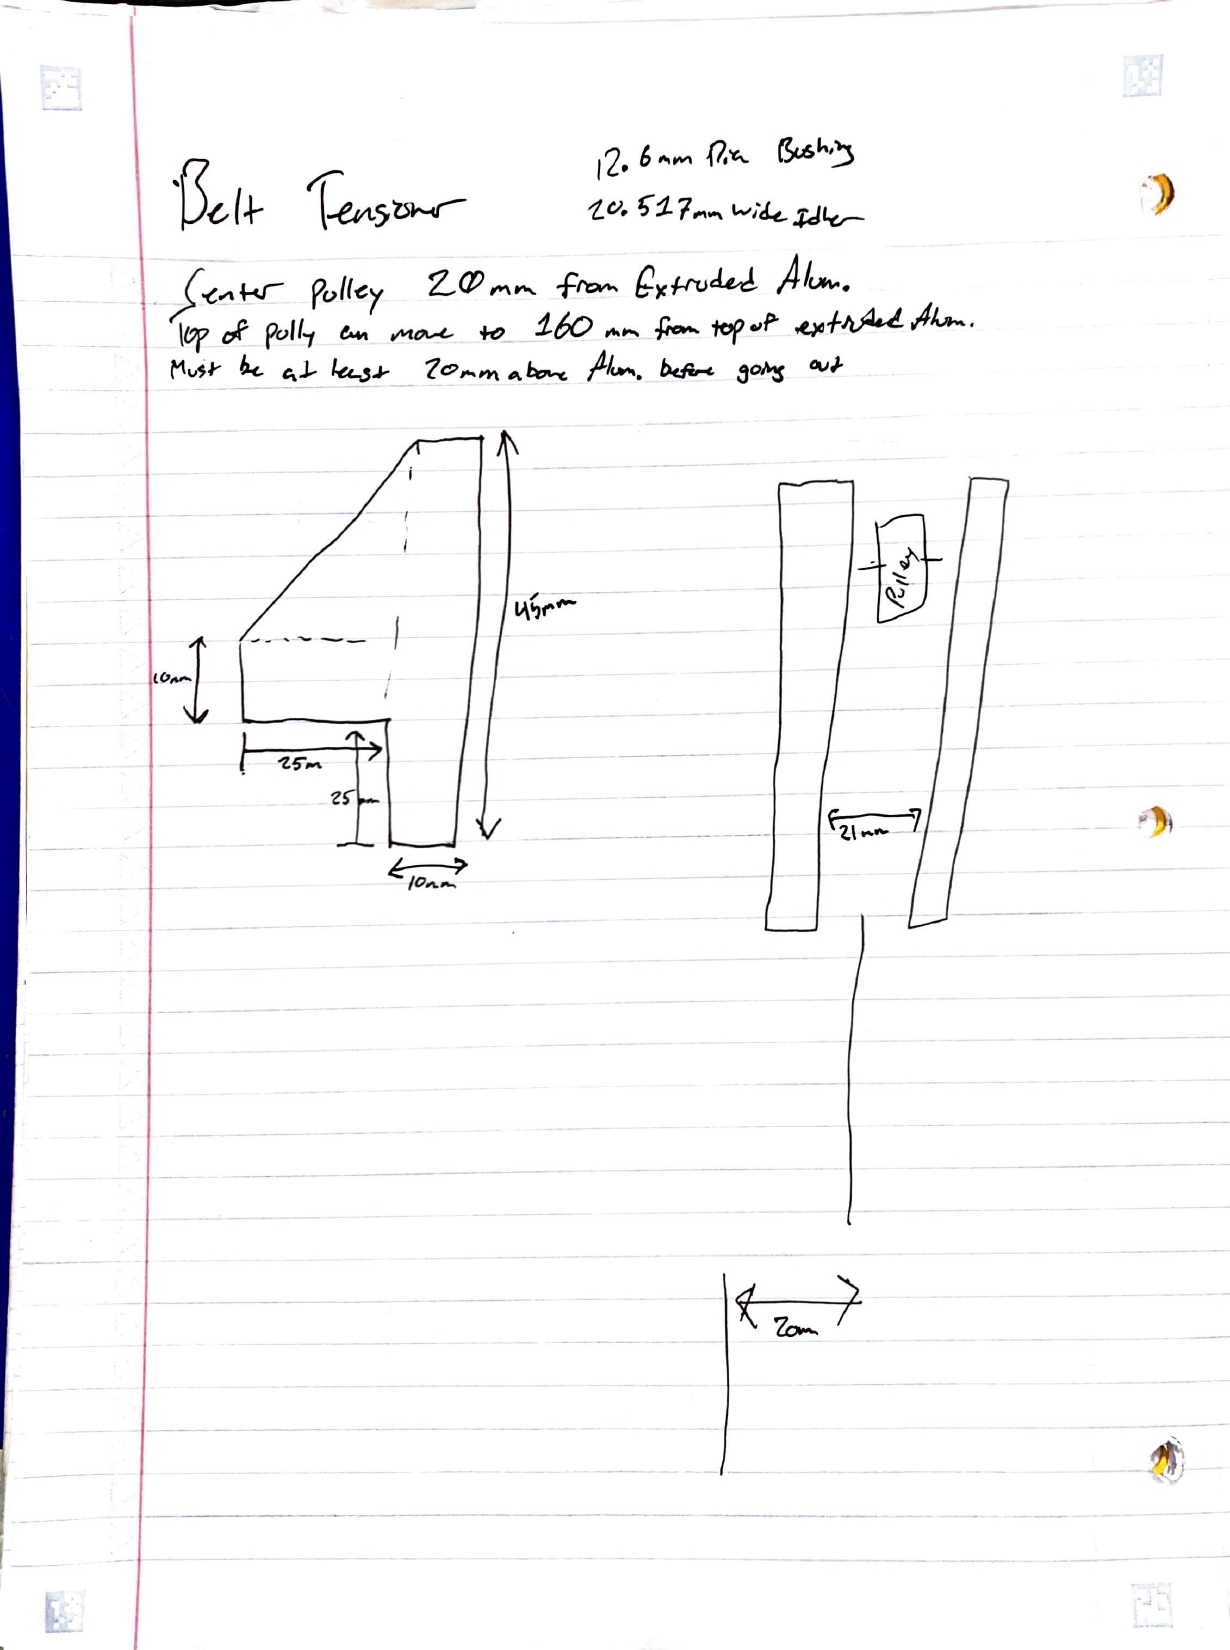 12.6mm Dia Bushing
Belt Tensioner
20.517mm wide Idler
Center Pulley 20mm from Extruded Alum.
Top of pully can move to 160 mm from top of extruded Alum.
Must be at least 20mm above Alum. before going out
Pulley
45mm
10mm
25m
25mm
21mm
10mm
20mm